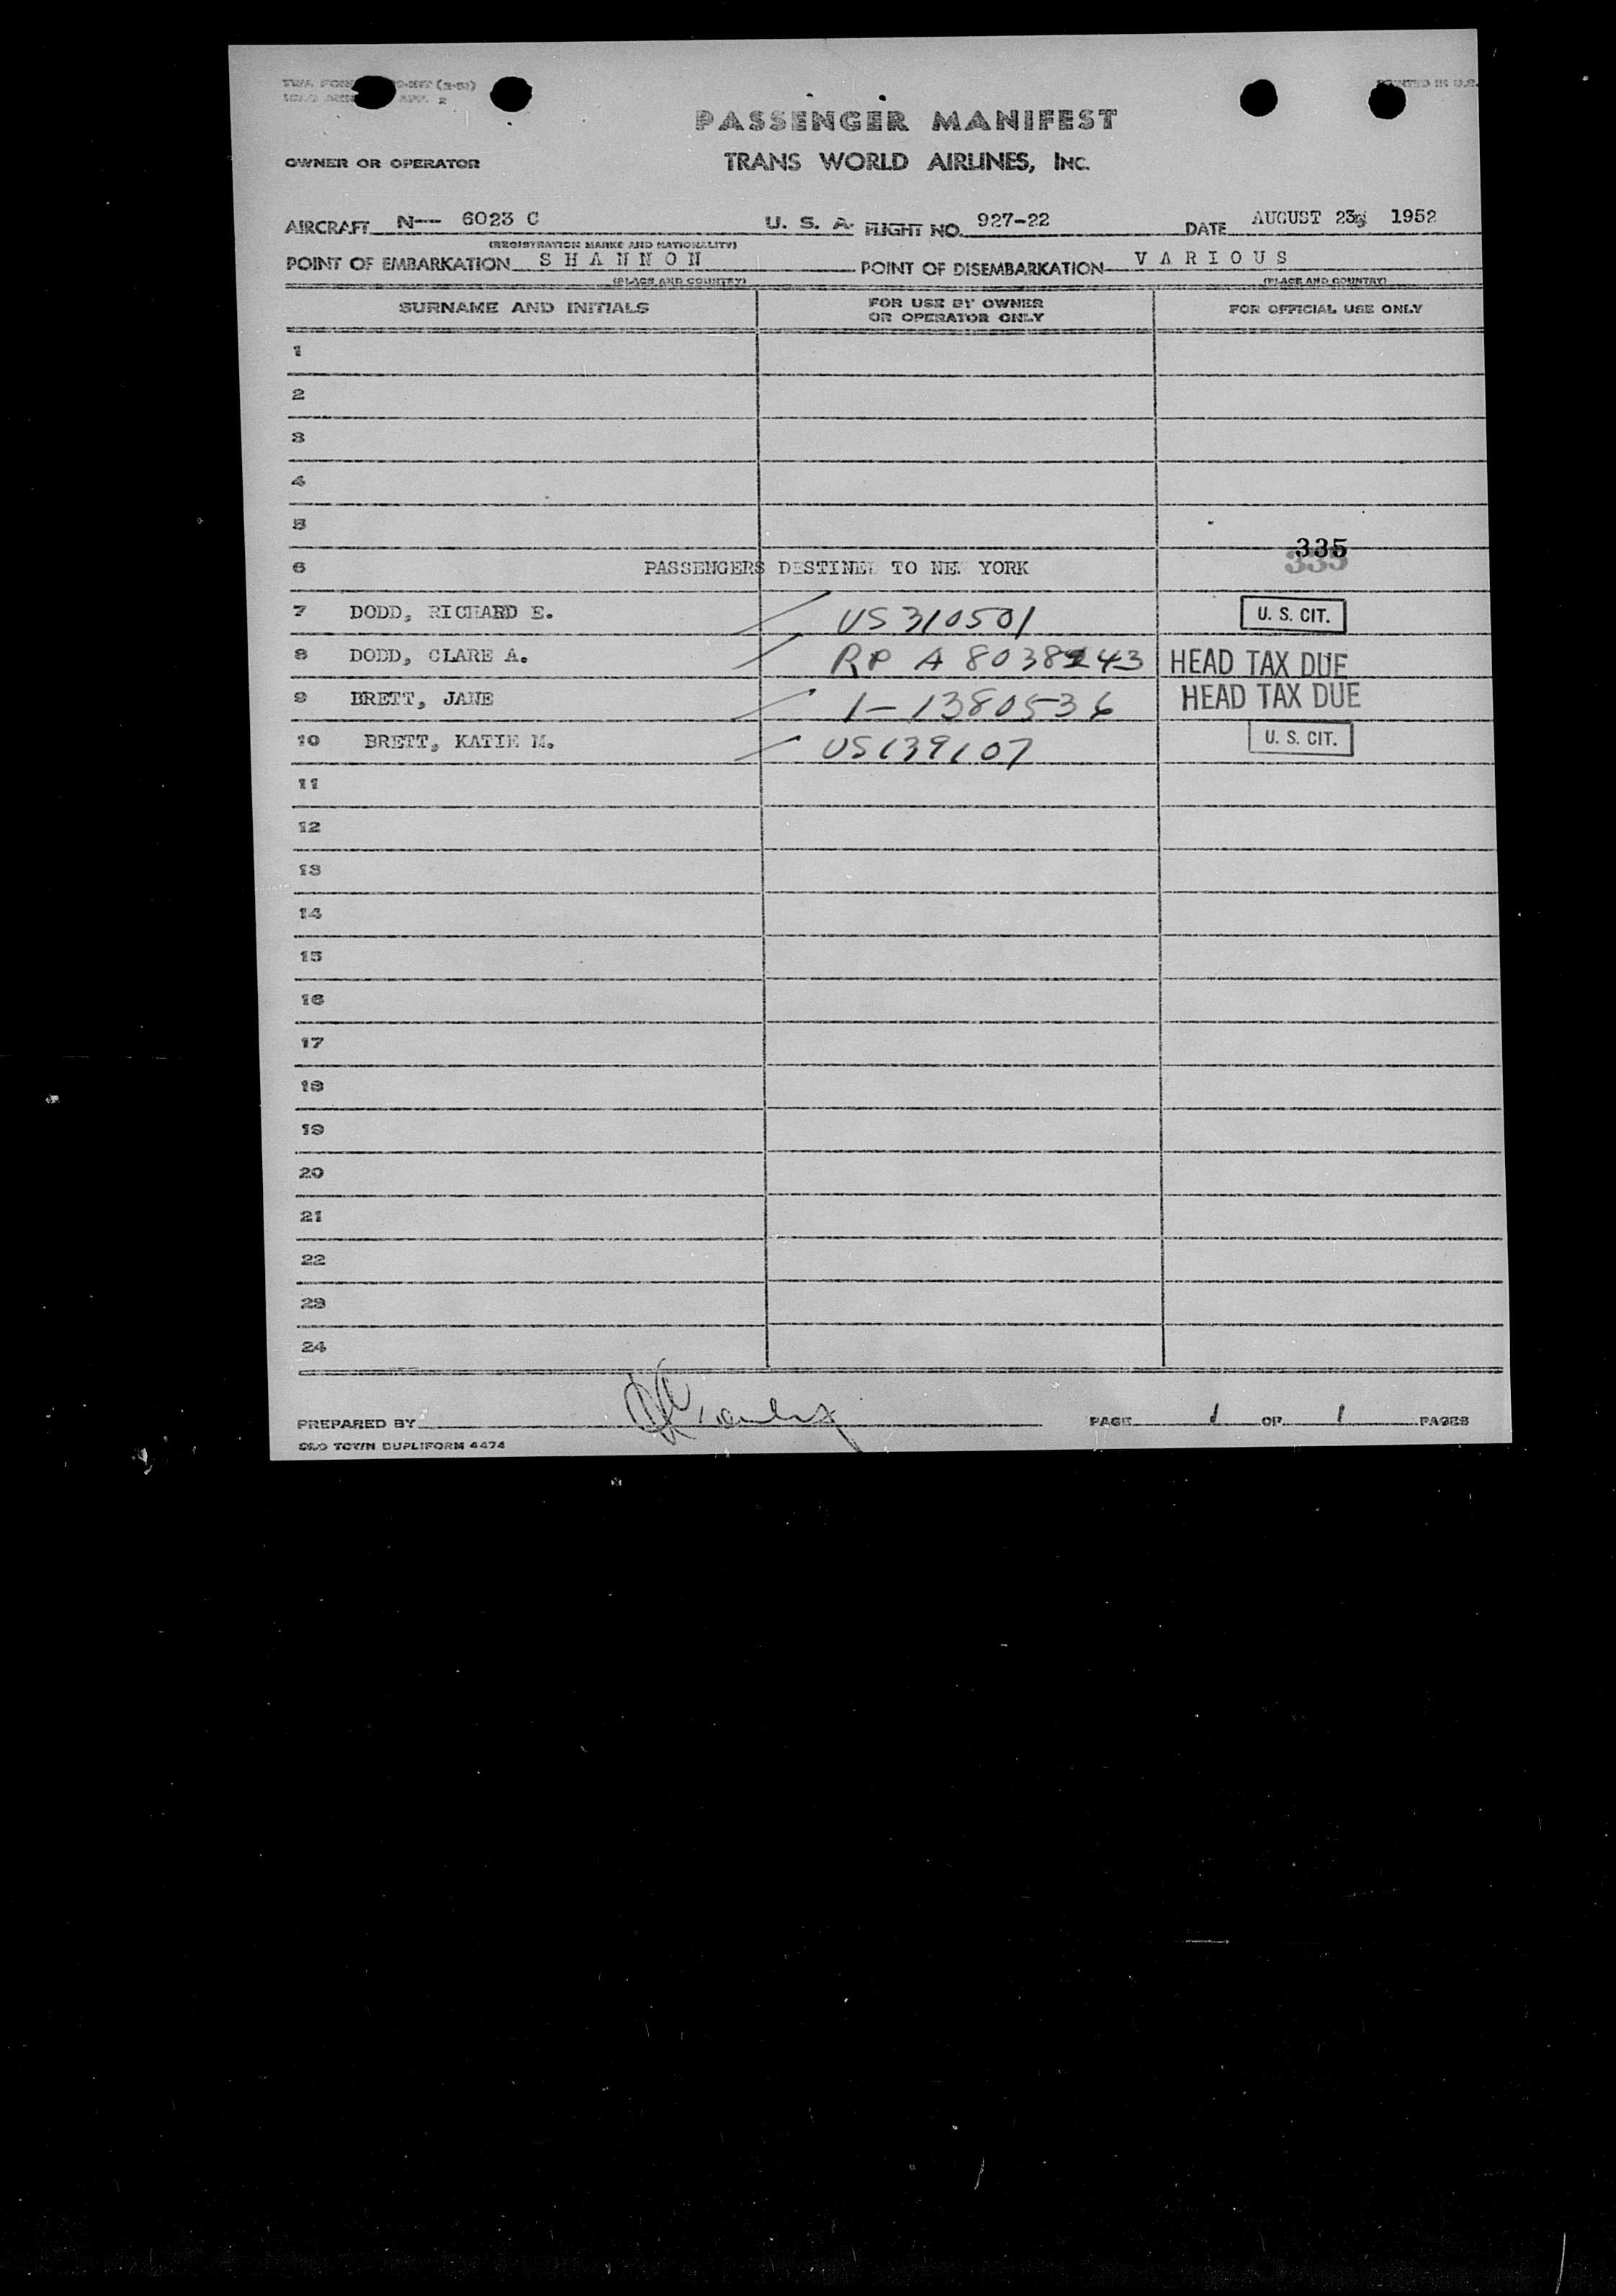 TWA FORM (2-51)
PRINTED IN U.S.
PASSENGER MANIFEST
OWNER OR OPERATOR TRANS WORLD AIRLINES, INC.
AIRCRAFT N-- 6023 C U. S. A. FLIGHT NO. 927-22 DATE AUGUST 23, 1952
(REGISTRATION MARKS AND NATIONALITY)
POINT OF EMBARKATION S H A N N O N POINT OF DISEMBARKATION V A R I O U S
(PLACE AND COUNTRY) (PLACE AND COUNTRY)
SURNAME AND INITIALS FOR USE BY OWNER OR OPERATOR ONLY FOR OFFICIAL USE ONLY
1
2
3
4
5
335
6 PASSENGERS DESTINED TO NEW YORK 335
7 DODD, RICHARD E. US 310501 U. S. CIT.
8 DODD, CLARE A. RP A 8038243 HEAD TAX DUE
9 BRETT, JANE 1-1380536 HEAD TAX DUE
10 BRETT, KATIE M. US 139107 U. S. CIT.
11
12
13
14
15
16
17
18
19
20
21
22
23
24
PREPARED BY PAGE 1 OF 1 PAGES
OLD TOWN DUPLIFORM 4474